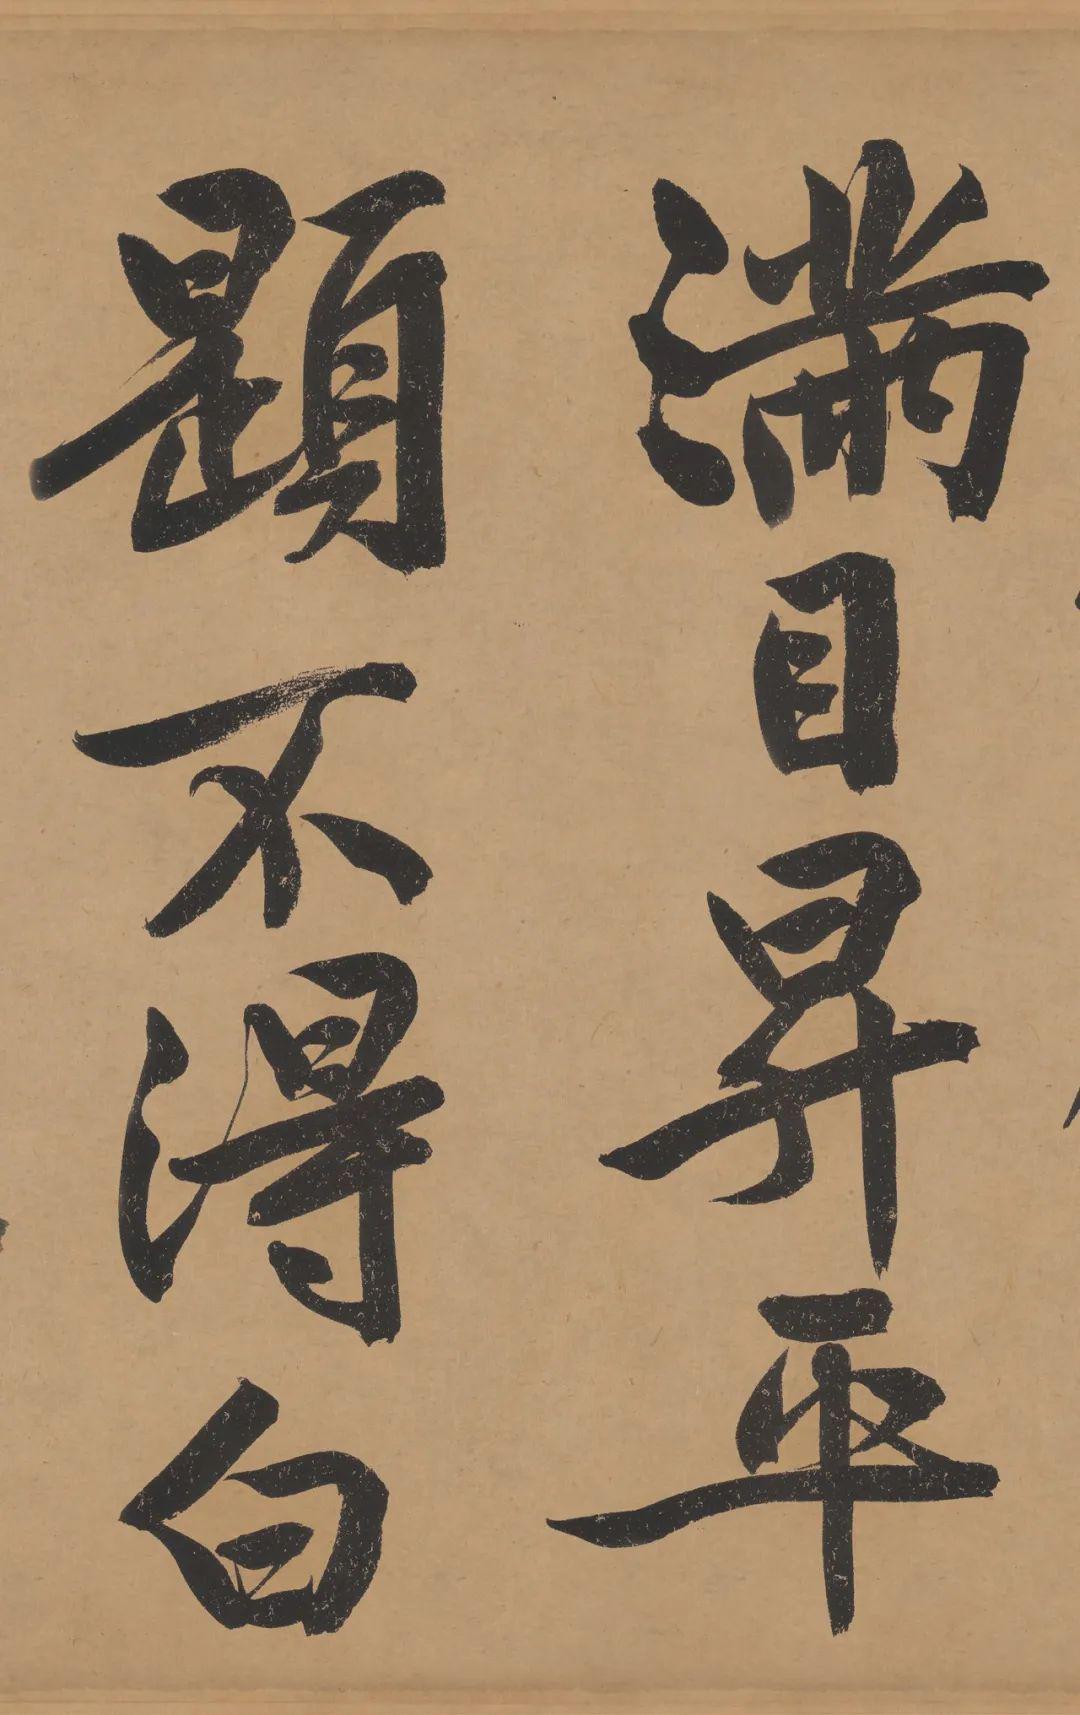 滿目昇平
題不得白